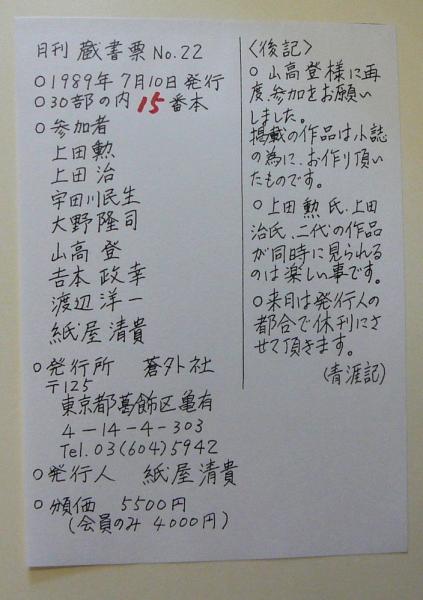 月刊 蔵書票 No.22
○1989年 7月10日 発行
○30部の内 15 番本
○参加者
上田勲
上田 治
宇田川民生
大野隆司
山高 登
吉本 政幸
渡辺 洋一
紙屋 清貴
○発行所 蒼外社
〒125
東京都葛飾区亀有
4-14-4-303
Tel.03(604)5942
○発行人 紙屋清貴
○頒価 5500円
(会員のみ 4000円)
〈後記〉
○山高登様に再
度、参加をお願い
しました。
掲載の作品は小誌
の為に、お作り頂い
たものです。
○上田 勲 氏、上田
治氏、二代の作品
が同時に見られる
のは楽しい事です。
○来月は発行人の
都合で休刊にさ
せて頂きます。
(青涯記)